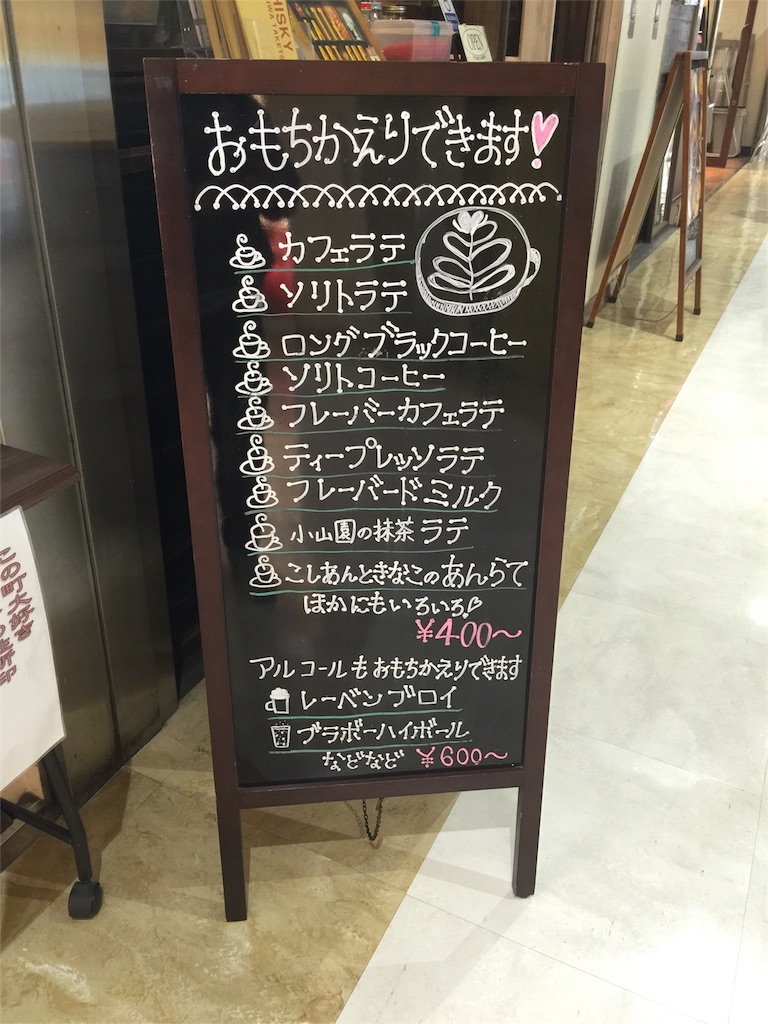 HISKY
OPEN
おもちかえりできます!
カフェラテ
ソリトラテ
ロングブラックコーヒー
ソリトコーヒー
フレーバーカフェラテ
ティープレッソラテ
フレーバードミルク
小山園の抹茶ラテ
こしあんときなこのあんらて
ほかにもいろいろ♡
¥400〜
アルコールもおもちかえりできます
レーベンブロイ
ブラボーハイボール
などなど ¥600〜
この町大好き